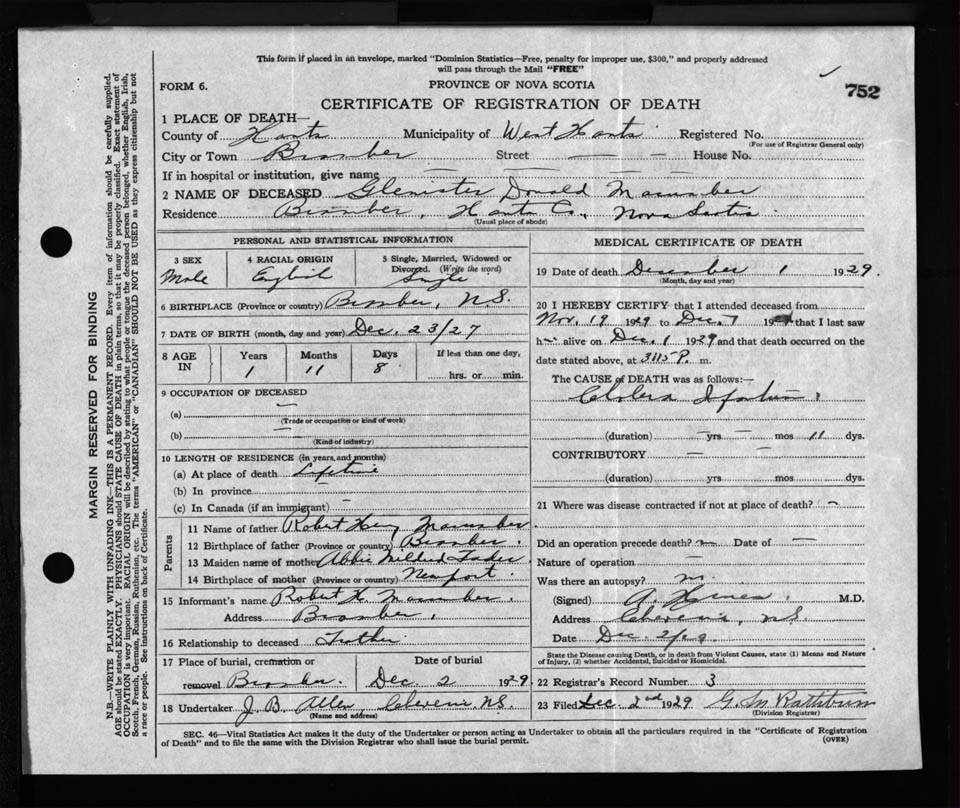 This form if placed in an envelope, marked "Dominion Statistics—Free, penalty for improper use, $300," and properly addressed
will pass through the Mail "FREE"
FORM 6.
PROVINCE OF NOVA SCOTIA
752
CERTIFICATE OF REGISTRATION OF DEATH
1 PLACE OF DEATH—
County of Hants Municipality of West Hants Registered No.
(For use of Registrar General only)
City or Town Bramber Street — — — House No.
If in hospital or institution, give name — — — —
2 NAME OF DECEASED Glenister Donald Macumber
Residence Bramber, Hants Co., Nova Scotia
(Usual place of abode)
PERSONAL AND STATISTICAL INFORMATION
3 SEX 4 RACIAL ORIGIN 5 Single, Married, Widowed or
Divorced. (Write the word)
Male English Single
6 BIRTHPLACE (Province or country) Bramber, N.S.
7 DATE OF BIRTH (month, day and year) Dec. 23/27
8 AGE IN Years Months Days If less than one day,
1 11 8 hrs. or min.
9 OCCUPATION OF DECEASED
(a) —
(Trade or occupation or kind of work)
(b) —
(Kind of industry)
10 LENGTH OF RESIDENCE (in years, and months)
(a) At place of death Lifetime
(b) In province —
(c) In Canada (if an immigrant) —
Parents
11 Name of father Robert Henry Macumber
12 Birthplace of father (Province or country) Bramber.
13 Maiden name of mother Abbie
14 Birthplace of mother (Province or country) Newport.
15 Informant's name Robert H. Macumber.
Address Bramber,
16 Relationship to deceased Father.
17 Place of burial, cremation or Date of burial
removal Bramber. Dec. 2 1929
18 Undertaker J. B. Allen Cheverie N.S.
(Name and address)
MEDICAL CERTIFICATE OF DEATH
19 Date of death December 1 1929.
(Month, day and year)
20 I HEREBY CERTIFY that I attended deceased from
Nov. 19 1929 to Dec. 1 19 that I last saw
h alive on Dec. 1 1929 and that death occurred on the
date stated above, at 3.15 P. m.
The CAUSE of DEATH was as follows:—
Cholera Infantum,
(duration) — yrs. — mos 11 dys.
CONTRIBUTORY — —
(duration) yrs. mos. dys.
21 Where was disease contracted if not at place of death? —
Did an operation precede death? no Date of —
Nature of operation —
Was there an autopsy? no
(Signed) A. M.D.
Address Cheverie, N.S.
Date Dec. 2/29
State the Disease causing Death, or in death from Violent Causes, state (1) Means and Nature
of Injury, (2) whether Accidental, Suicidal or Homicidal.
22 Registrar's Record Number 3
23 Filed Dec. 2nd 1929 G. M. Rathburn
(Division Registrar)
SEC. 46—Vital Statistics Act makes it the duty of the Undertaker or person acting as Undertaker to obtain all the particulars required in the "Certificate of Registration
of Death" and to file the same with the Division Registrar who shall issue the burial permit. (OVER)
MARGIN RESERVED FOR BINDING
N.B.—WRITE PLAINLY WITH UNFADING INK—THIS IS A PERMANENT RECORD. Every item of information should be carefully supplied.
AGE should be stated EXACTLY. PHYSICIANS should STATE CAUSE OF DEATH in plain terms, so that it may be properly classified. Exact statement of
OCCUPATION is very important. RACIAL ORIGIN will be described by stating to what people or tongue the deceased person belonged, whether English, Irish,
Scotch, French, German, Russian, Ruthenian, etc. The terms "AMERICAN" or "CANADIAN" SHOULD NOT BE USED as they express citizenship but not
a race or people. See instructions on back of Certificate.